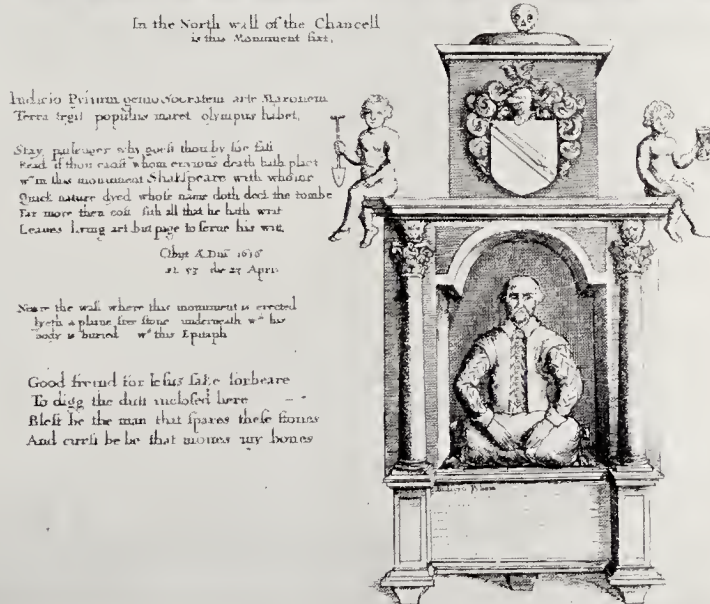 In the North wall of the Chancell
is this Monument fixt,
Iudicio Pilium genio Socratem arte Maronem
Terra tegit populus maret olympus habet.
Stay passenger why goest thou by soe fast
Read if thou canst whom envious death hath plact
wth in this monument Shakspeare with whome
Quick nature dyed whose name doth deck the tombe
Far more then cost sith all that he hath writ
Leaves living art but page to serve his witt.
Obijt A Dni 1616
æt. 53 die 23 Apri.
Neare the wall where this monument is erected
lyeth a plaine free stone underneath wch his
body is buried wth this Epitaph
Good freind for Iesus sake forbeare
To digg the dust inclosed here
Blest be the man that spares these stones
And curst be he that moves my bones